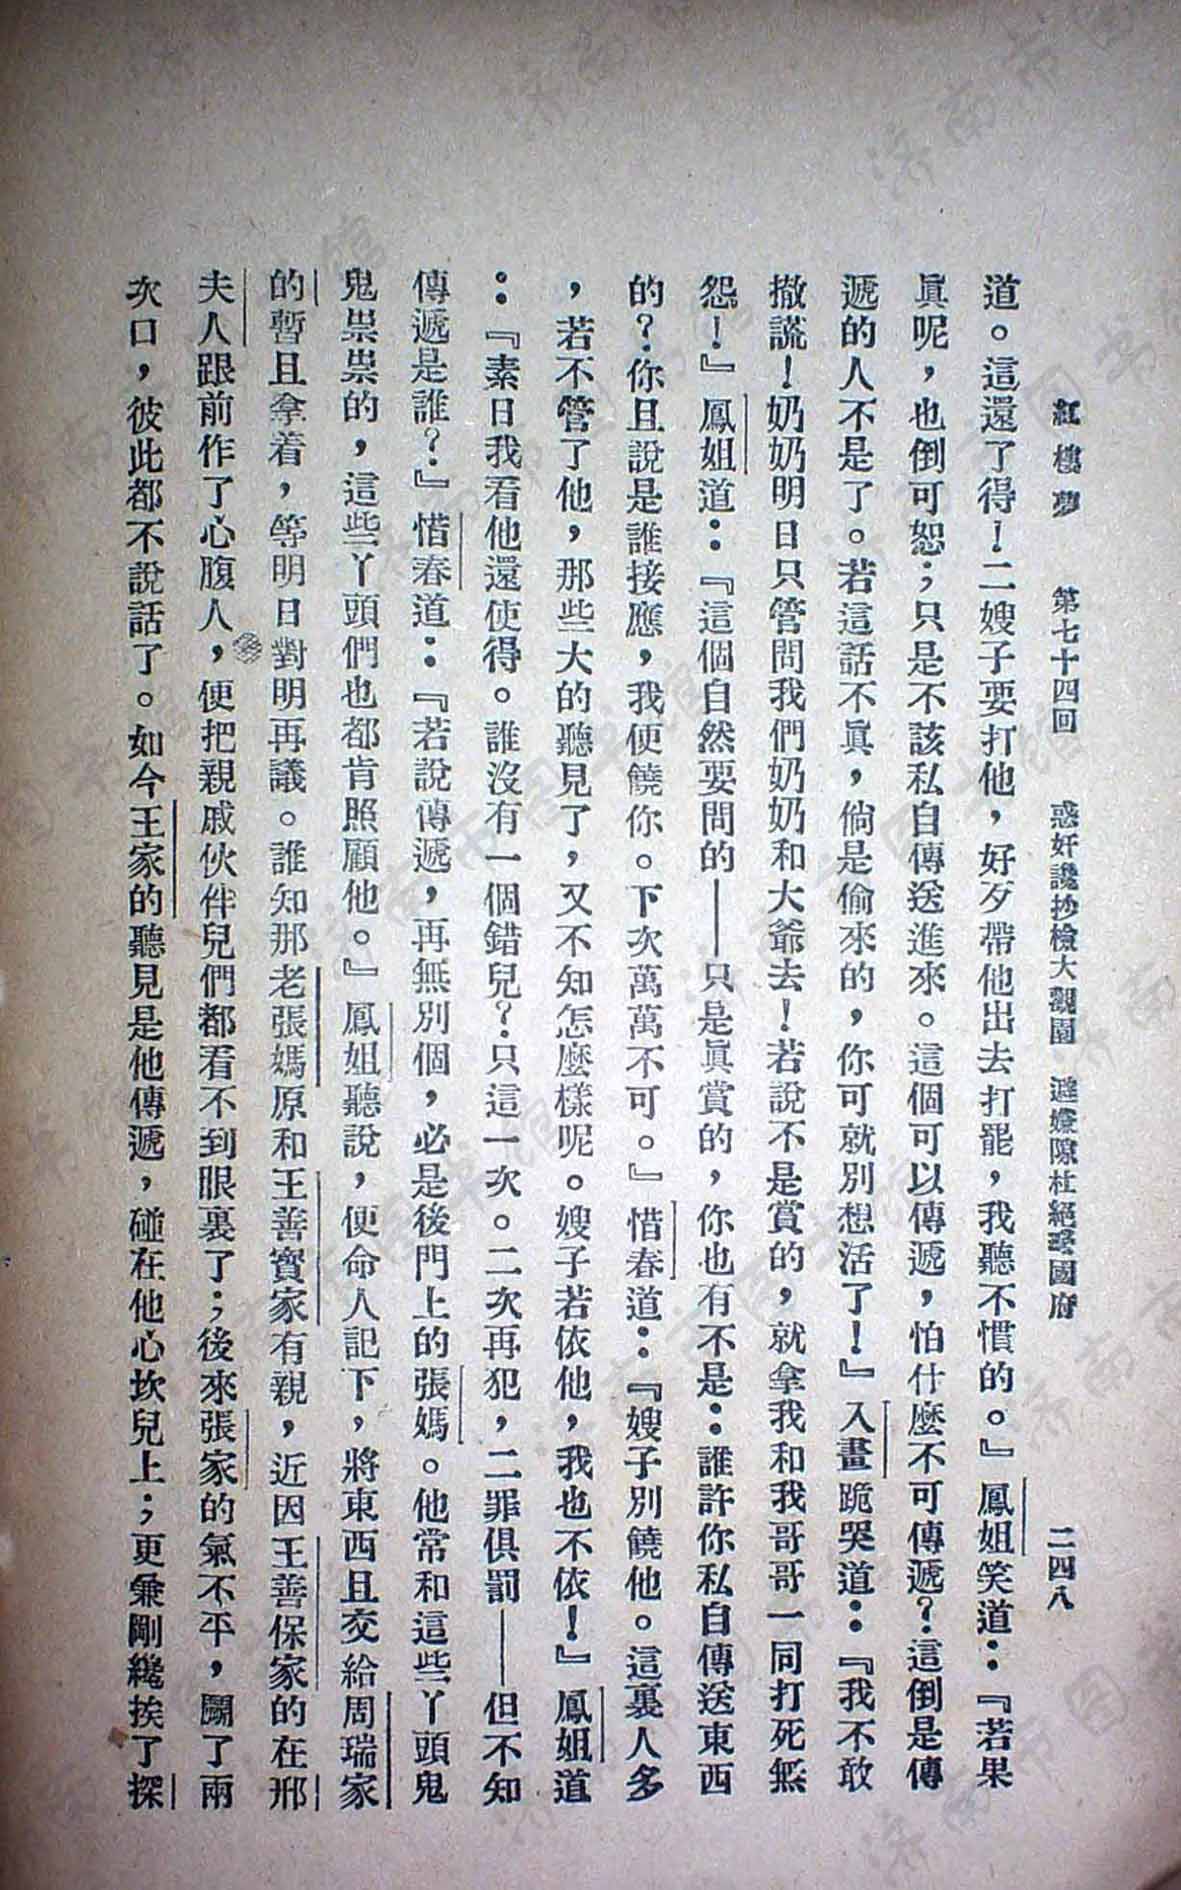 紅樓夢　第七十四回　惑奸讒抄檢大觀園　避嫌隙杜絕寧國府　二四八
道。這還了得！二嫂子要打他，好歹帶他出去打罷，我聽不慣的。』鳳姐笑道：『若果
眞呢，也倒可恕；只是不該私自傳送進來。這個可以傳遞，怕什麼不可傳遞？這倒是傳
遞的人不是了。若這話不眞，倘是偷來的，你可就別想活了！』入畫跪哭道：『我不敢
撒謊！奶奶明日只管問我們奶奶和大爺去！若說不是賞的，就拿我和我哥哥一同打死無
怨！』鳳姐道：『這個自然要問的——只是眞賞的，你也有不是：誰許你私自傳送東西
的？你且說是誰接應，我便饒你。下次萬萬不可。』惜春道：『嫂子別饒他。這裏人多
，若不管了他，那些大的聽見了，又不知怎麼樣呢。嫂子若依他，我也不依！』鳳姐道
：『素日我看他還使得。誰沒有一個錯兒？只這一次。二次再犯，二罪俱罰——但不知
傳遞是誰？』惜春道：『若說傳遞，再無別個，必是後門上的張媽。他常和這些丫頭鬼
鬼祟祟的，這些丫頭們也都肯照顧他。』鳳姐聽說，便命人記下，將東西且交給周瑞家
的暫且拿着，等明日對明再議。誰知那老張媽原和王善寳家有親，近因王善保家的在邢
夫人跟前作了心腹人，便把親戚伙伴兒們都看不到眼裏了；後來張家的氣不平，鬬了兩
次口，彼此都不說話了。如今王家的聽見是他傳遞，碰在他心坎兒上；更兼剛纔挨了探
济南市图书馆